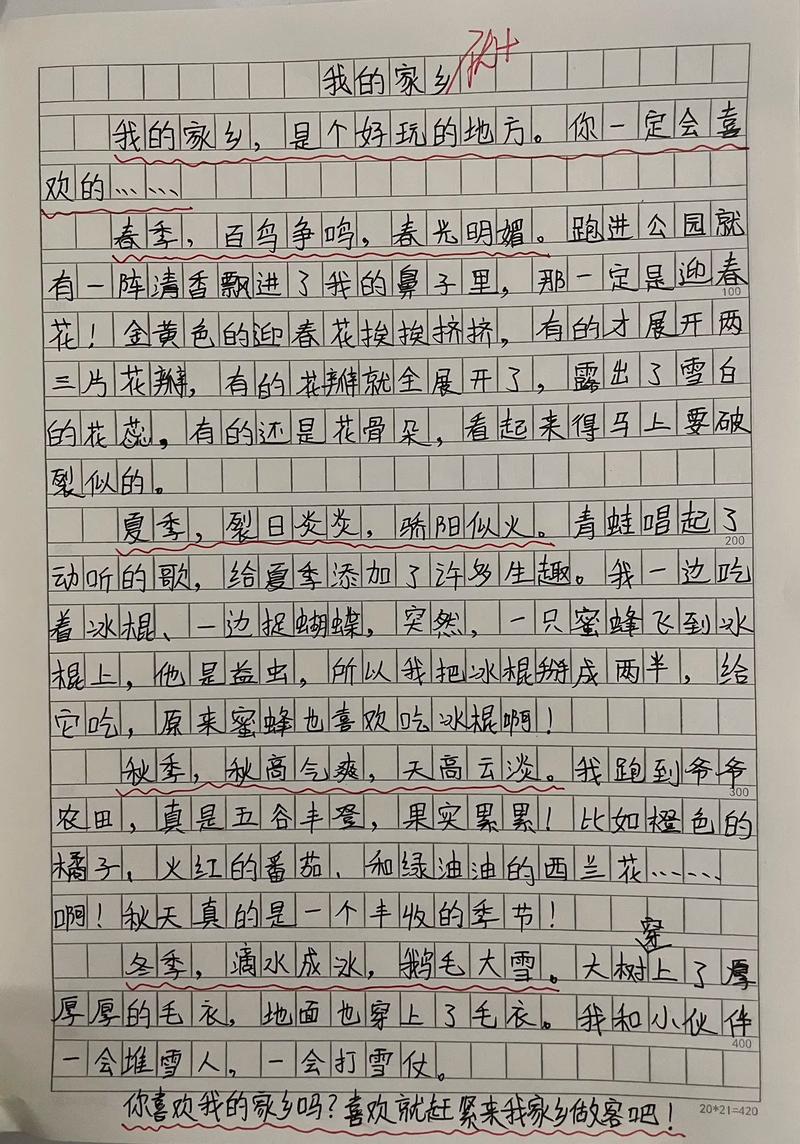 我的家乡
我的家乡，是个好玩的地方。你一定会喜
欢的……
春季，百鸟争鸣，春光明媚。跑进公园就
有一阵清香飘进了我的鼻子里，那一定是迎春
100
花！金黄色的迎春花挨挨挤挤，有的才展开两
三片花瓣，有的花瓣就全展开了，露出了雪白
的花蕊，有的还是花骨朵，看起来得马上要破
裂似的。
夏季，裂日炎炎，骄阳似火。青蛙唱起了
200
动听的歌，给夏季添加了许多生趣。我一边吃
着冰棍、一边捉蝴蝶，突然，一只蜜蜂飞到冰
棍上，他是益虫，所以我把冰棍掰成两半，给
它吃，原来蜜蜂也喜欢吃冰棍啊！
秋季，秋高气爽，天高云淡。我跑到爷爷
300
农田，真是五谷丰登，果实累累！比如橙色的
橘子，火红的番茄、和绿油油的西兰花……
啊！秋天真的是一个丰收的季节！
冬季，滴水成冰，鹅毛大雪。大树穿上了厚
厚厚的毛衣，地面也穿上了毛衣。我和小伙伴
400
一会堆雪人，一会打雪仗。
20*21=420
你喜欢我的家乡吗？喜欢就赶紧来我家乡做客吧！